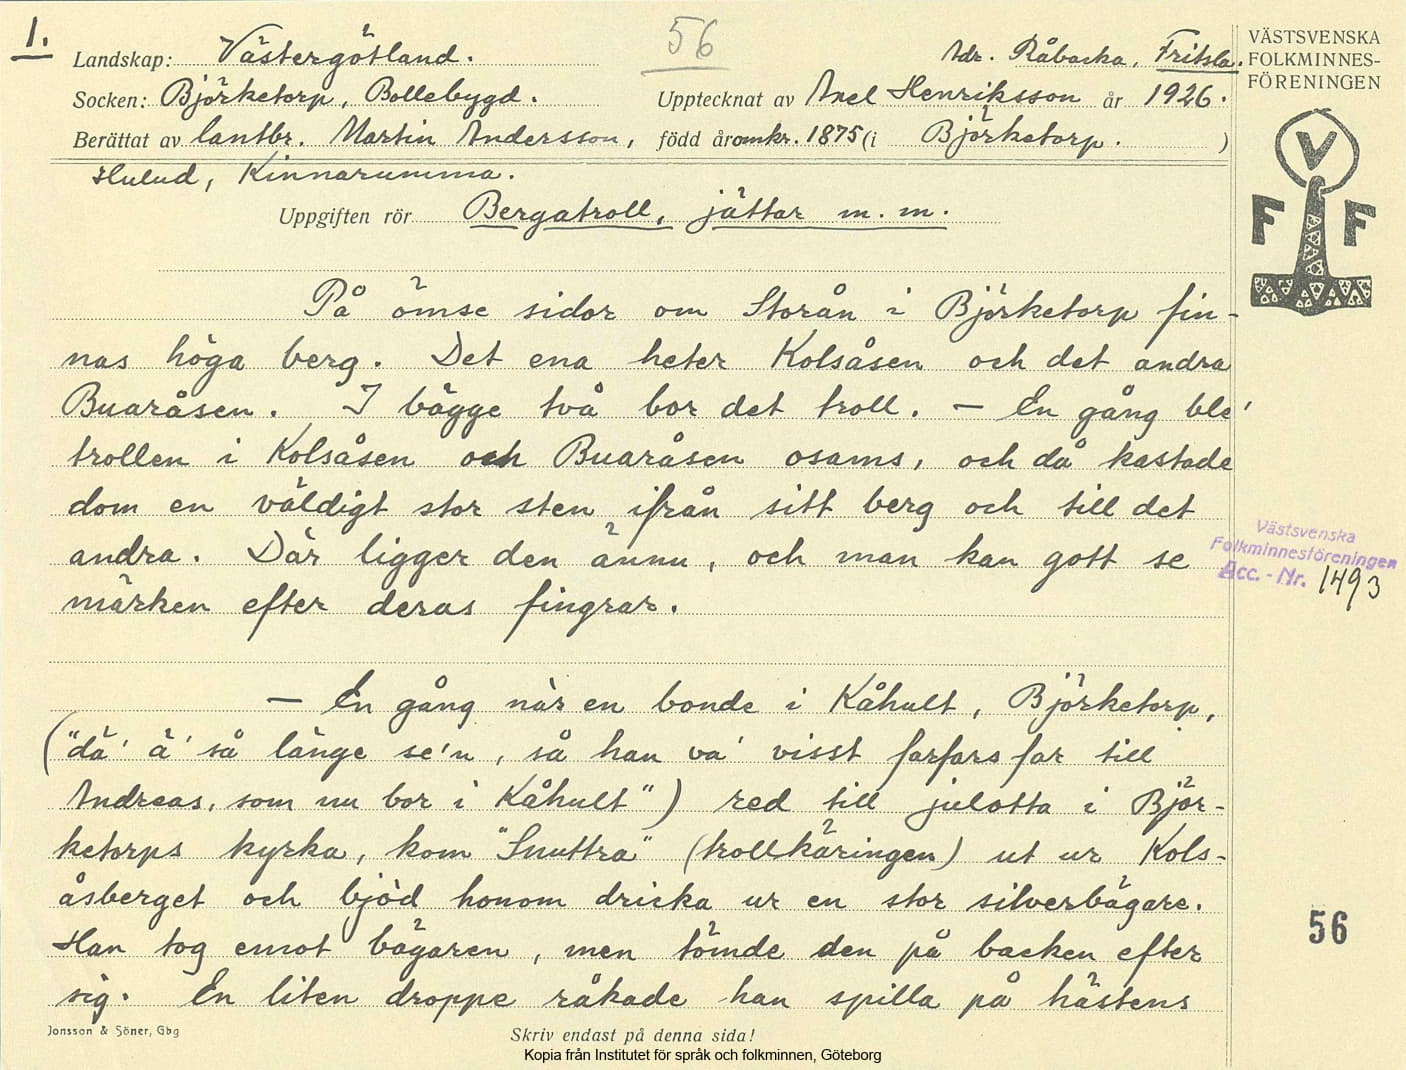 1.
56
Landskap: Västergötland.
Adr. Råbacka, Fritsla.
Socken: Björketorp, Bollebygd.
Upptecknat av Axel Henriksson år 1926.
Berättat av lantbr. Martin Andersson, född år omkr. 1875 (i Björketorp. )
Hulud, Kinnarumma.
Uppgiften rör Bergatroll, jättar m. m.
På ömse sidor om Storån i Björketorp fin-
nas höga berg. Det ena heter Kolsåsen och det andra
Buaråsen. I bägge två bor det troll. — En gång ble'
trollen i Kolsåsen och Buaråsen osams, och då kastade
dom en väldigt stor sten ifrån sitt berg och till det
andra. Där ligger den ännu, och man kan gott se
märken efter deras fingrar.
— En gång när en bonde i Kåhult, Björketorp,
("dä' ä' så länge se'n, så han va' visst farfars far till
Andreas, som nu bor i Kåhult") red till julotta i Björ-
ketorps kyrka, kom "Snuttra" (trollkäringen) ut ur Kols-
åsberget och bjöd honom dricka ur en stor silverbägare.
Han tog emot bägaren, men tömde den på backen efter
sig. En liten droppe råkade han spilla på hästens
Jonsson & Söner, Gbg
Skriv endast på denna sida!
Kopia från Institutet för språk och folkminnen, Göteborg
VÄSTSVENSKA
FOLKMINNES-
FÖRENINGEN
V
F F
Västsvenska
Folkminnesföreningen
Acc.-Nr. 1493
56